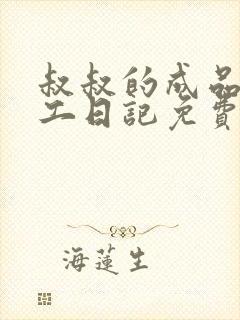 叔叔的成品
工日記免費
海蓮生